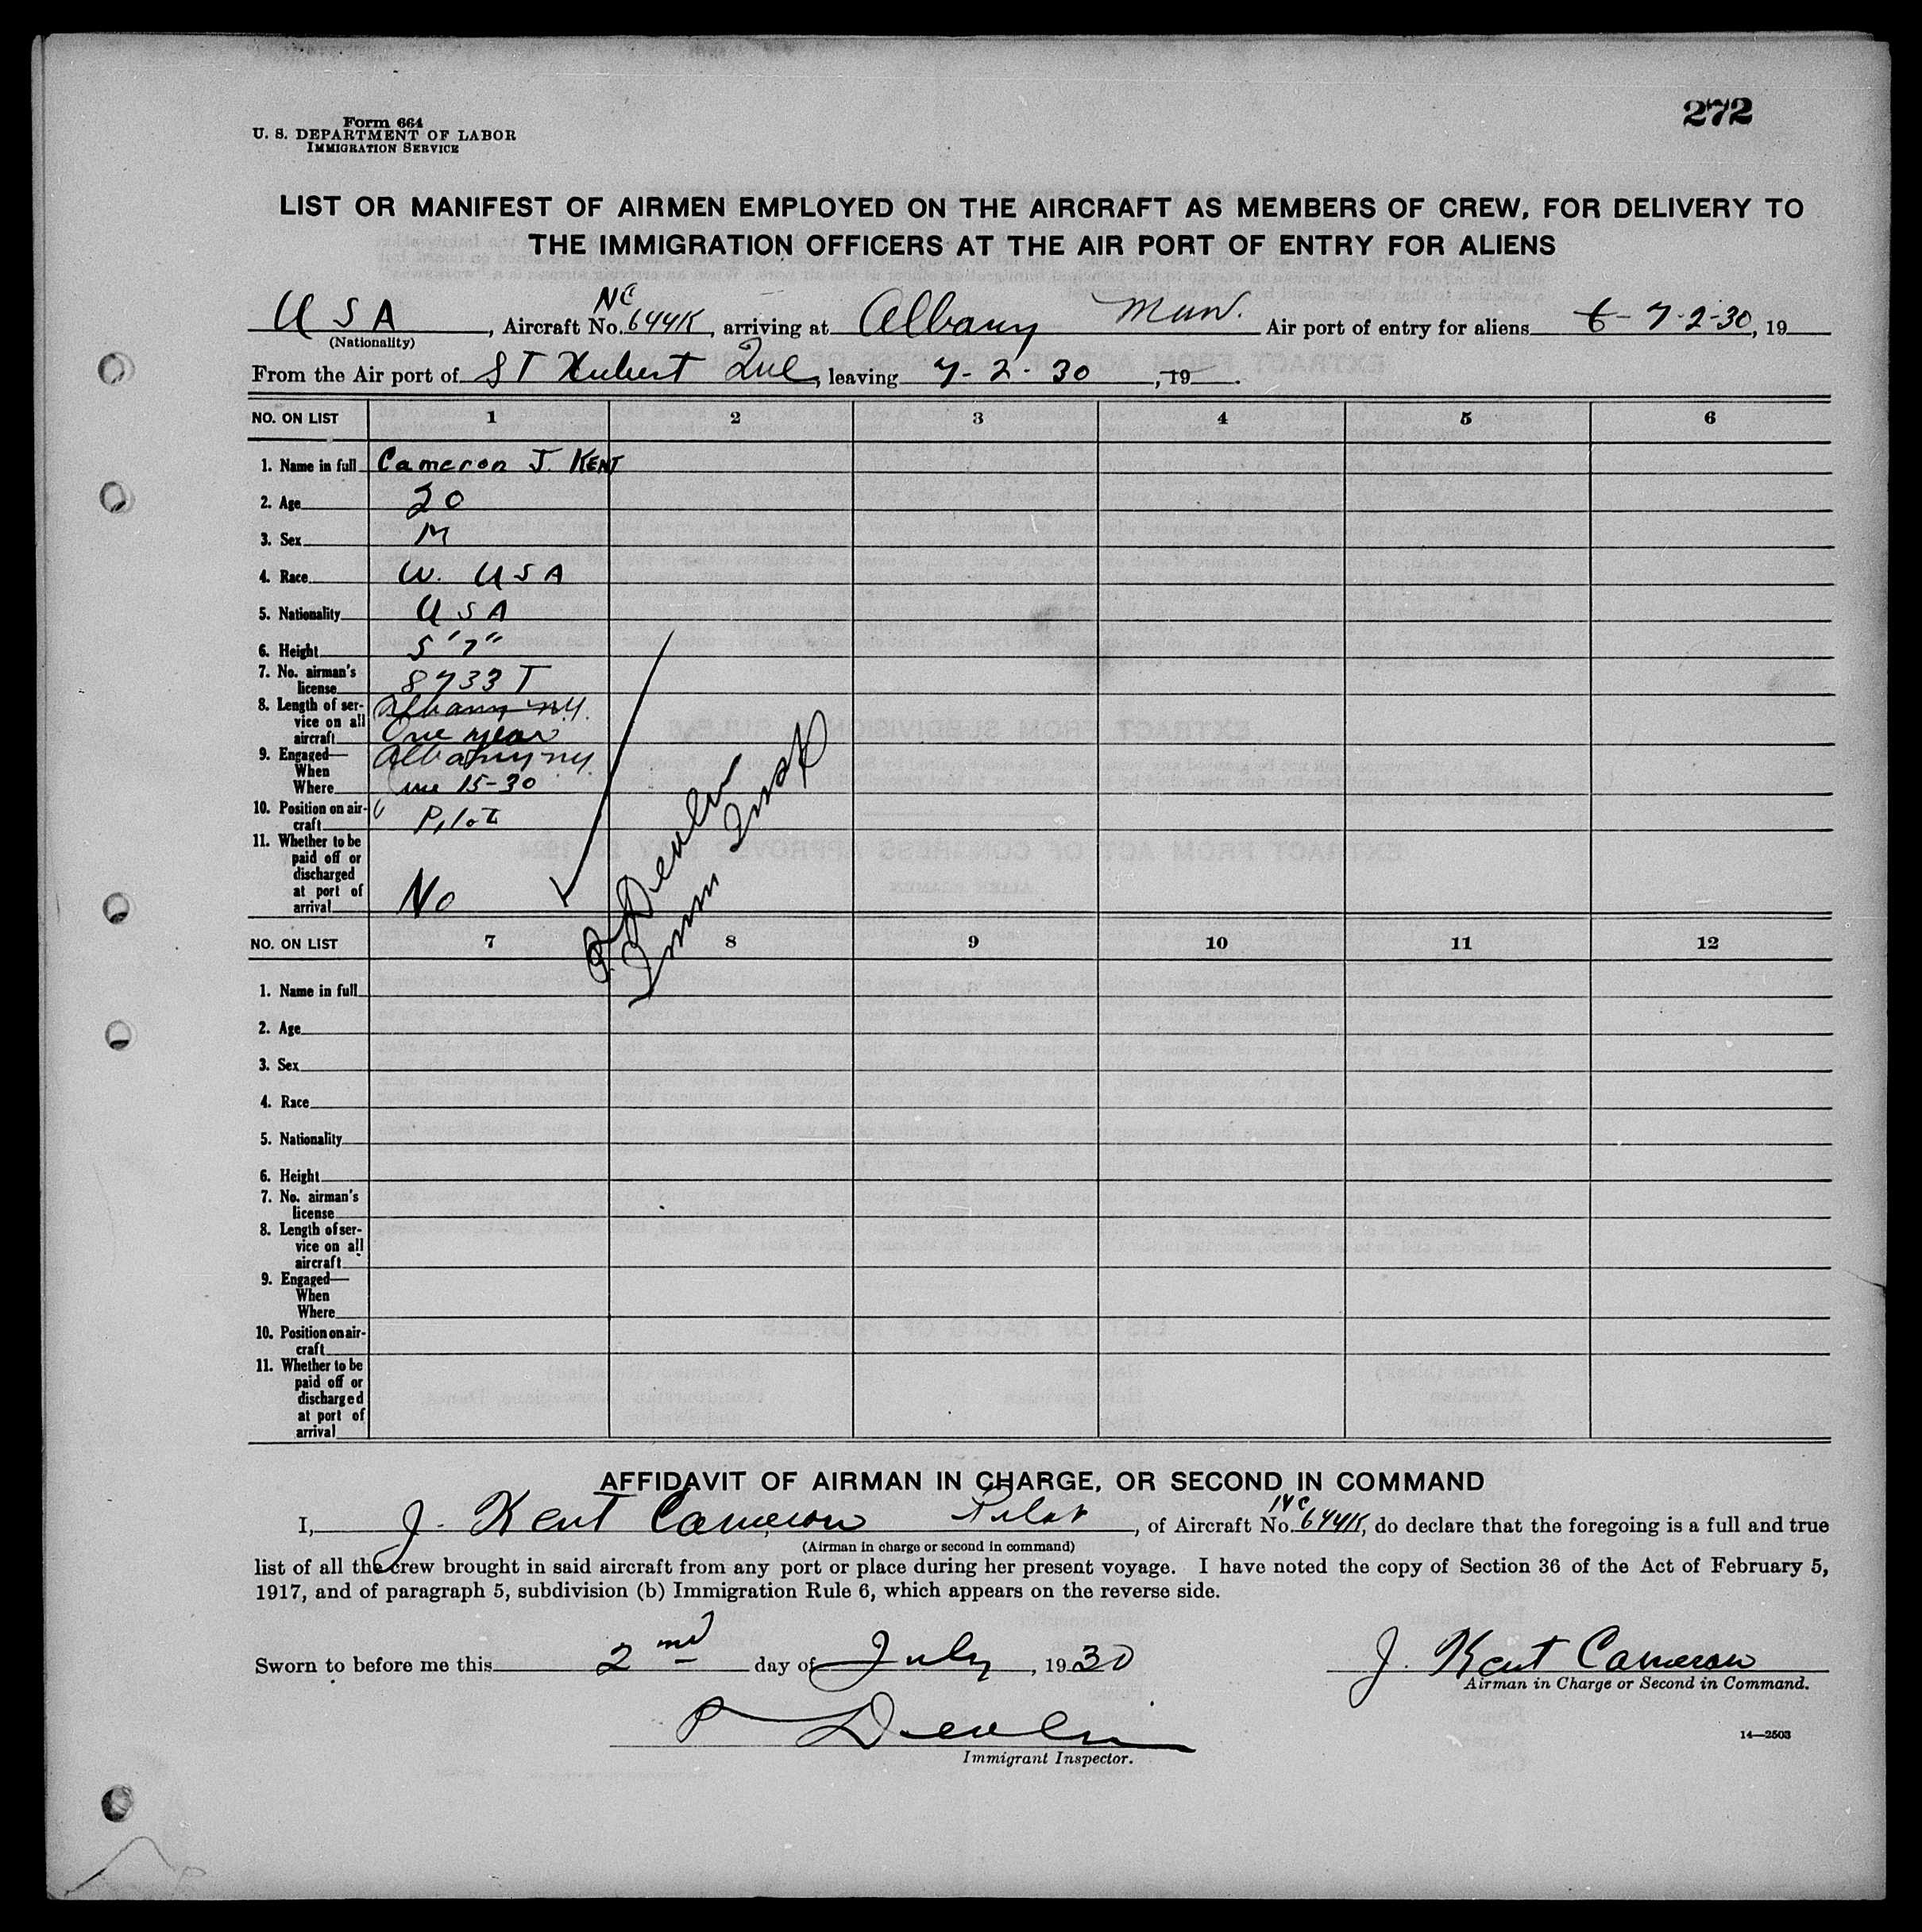 272
Form 664
U. S. DEPARTMENT OF LABOR
IMMIGRATION SERVICE
LIST OR MANIFEST OF AIRMEN EMPLOYED ON THE AIRCRAFT AS MEMBERS OF CREW, FOR DELIVERY TO
THE IMMIGRATION OFFICERS AT THE AIR PORT OF ENTRY FOR ALIENS
USA, Aircraft No. NC 644K, arriving at Albany Mun. Air port of entry for aliens 6- 7-2-30, 19
(Nationality)
From the Air port of ST Hubert Que, leaving 7-2-30, 19 .
NO. ON LIST 1 2 3 4 5 6
1. Name in full Cameron J. KENT
2. Age 20
3. Sex M
4. Race W. USA
5. Nationality USA
6. Height 5'7"
7. No. airman's
license 8733 T
8. Length of ser- Albany N.Y.
vice on all
aircraft One year
9. Engaged— Albany N.Y.
When
Where June 15-30
10. Position on air-
craft Pilot
11. Whether to be
paid off or
discharged
at port of
arrival No
P Devlin
Imm Inspt
NO. ON LIST 7 8 9 10 11 12
1. Name in full
2. Age
3. Sex
4. Race
5. Nationality
6. Height
7. No. airman's
license
8. Length of ser-
vice on all
aircraft
9. Engaged—
When
Where
10. Position on air-
craft
11. Whether to be
paid off or
discharged
at port of
arrival
AFFIDAVIT OF AIRMAN IN CHARGE, OR SECOND IN COMMAND
I, J. Kent Cameron Pilot, of Aircraft No. NC 644K, do declare that the foregoing is a full and true
(Airman in charge or second in command)
list of all the crew brought in said aircraft from any port or place during her present voyage. I have noted the copy of Section 36 of the Act of February 5,
1917, and of paragraph 5, subdivision (b) Immigration Rule 6, which appears on the reverse side.
Sworn to before me this 2nd day of July, 1930 J. Kent Cameron
Airman in Charge or Second in Command.
P Devlin
Immigrant Inspector.
14—2503